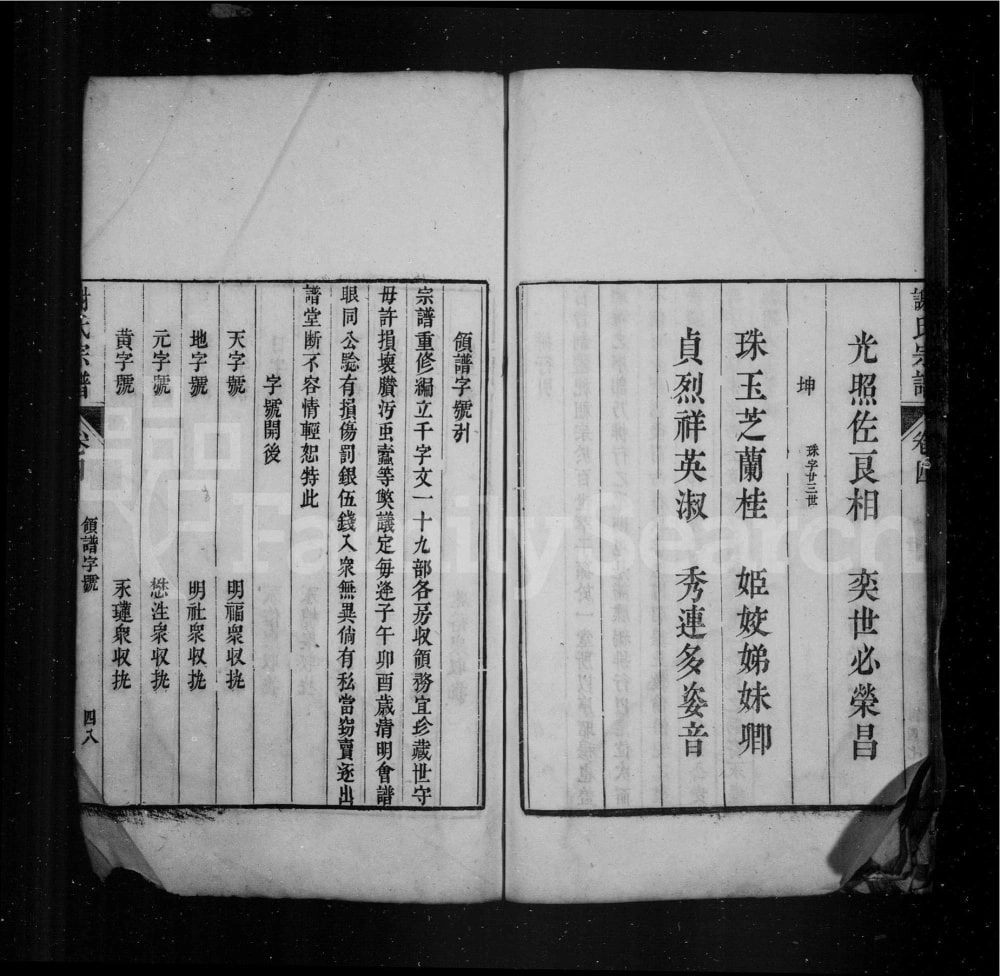 光照佐良相　奕世必榮昌
坤　珠字廿三世
珠玉芝蘭桂　姬姣娣妹卿
貞烈祥英淑　秀連多姿音
領譜字號引
宗譜重修編立千字文一十九部各房収領務宜珍藏世守
毋許損壞賸污虫蠹等獘議定每逢子午卯酉歲清明會譜
眼同公騐有損傷罰銀伍錢入衆無異倘有私當窃賣逐出
譜堂斷不容情輕恕特此
字號開後
天字號　明福衆収執
地字號　明社衆収執
元字號　懋泩衆収執
黃字號　永璉衆収執
謝氏宗譜　卷四　領譜字號　四八
謝氏宗譜　卷四
FamilySearch